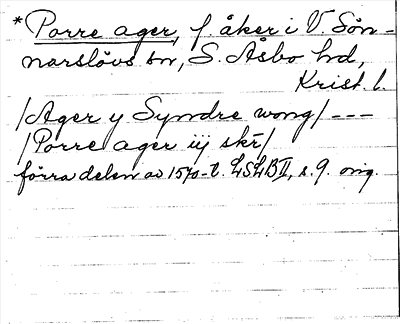 *Porre ager, f. åker i V. Sön-
narslövs sn, S. Åsbo hd,
Krist. l.
/Ager y Syndre wong/ ---
/Porre ager iij skr/
förra delen av 1570-t. LSLB II, s. 9. orig.